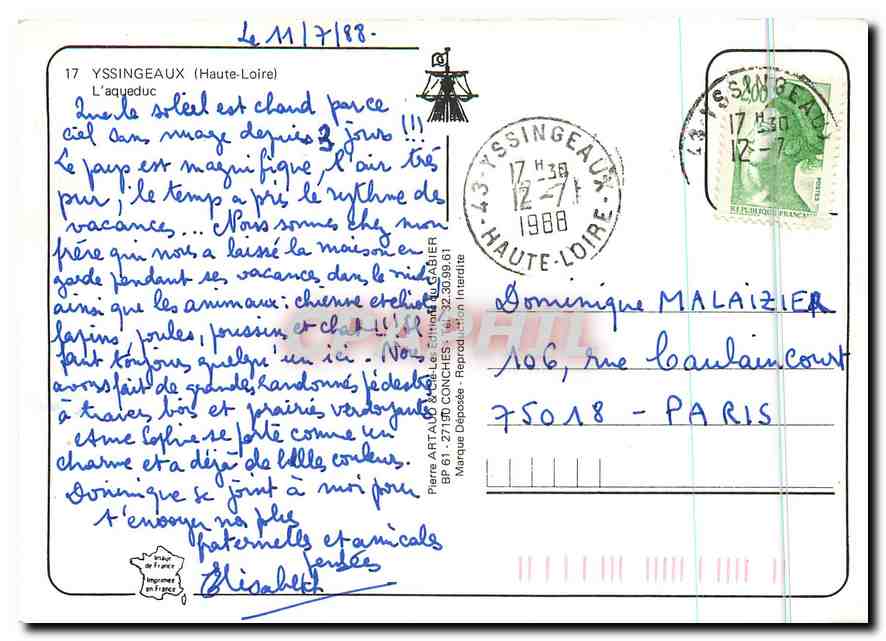 Le 11/7/88-
17 YSSINGEAUX (Haute-Loire)
L'aqueduc
Que le soleil est chaud par ce
ciel sans nuage depuis 3 jours !!!
Le pays est magnifique, l'air très
pur, le temps a pris le rythme des
vacances... Nous sommes chez mon
frère qui nous a laissé la maison en
garde pendant ses vacances dans le midi
ainsi que les animaux: chienne et chiots
lapins, poules, poussins et chat !!! Il
faut toujours quelqu'un ici. Nous
avons fait de grandes randonnées pédestres
à travers bois et prairies verdoyantes
et Sophie se porte comme un
charme et a déjà de belles couleurs.
Dominique se joint à moi pour
t'envoyer nos plus
fraternelles et amicales
pensées
Elisabeth
Image
de France
Imprimée
en France
Pierre ARTAUD & Cie - Les Editions du GABIER
BP 61 - 27190 CONCHES - Tél. 32.30.99.61
Marque Déposée - Reproduction Interdite
43 - YSSINGEAUX
17 H 30
12 - 7
1988
HAUTE-LOIRE
43 - YSSINGEAUX
17 H 30
12 - 7
2,00
POSTES
REPUBLIQUE FRANÇAISE
Dominique MALAIZIER
106, rue Caulaincourt
75018 - PARIS
CPAPHIL